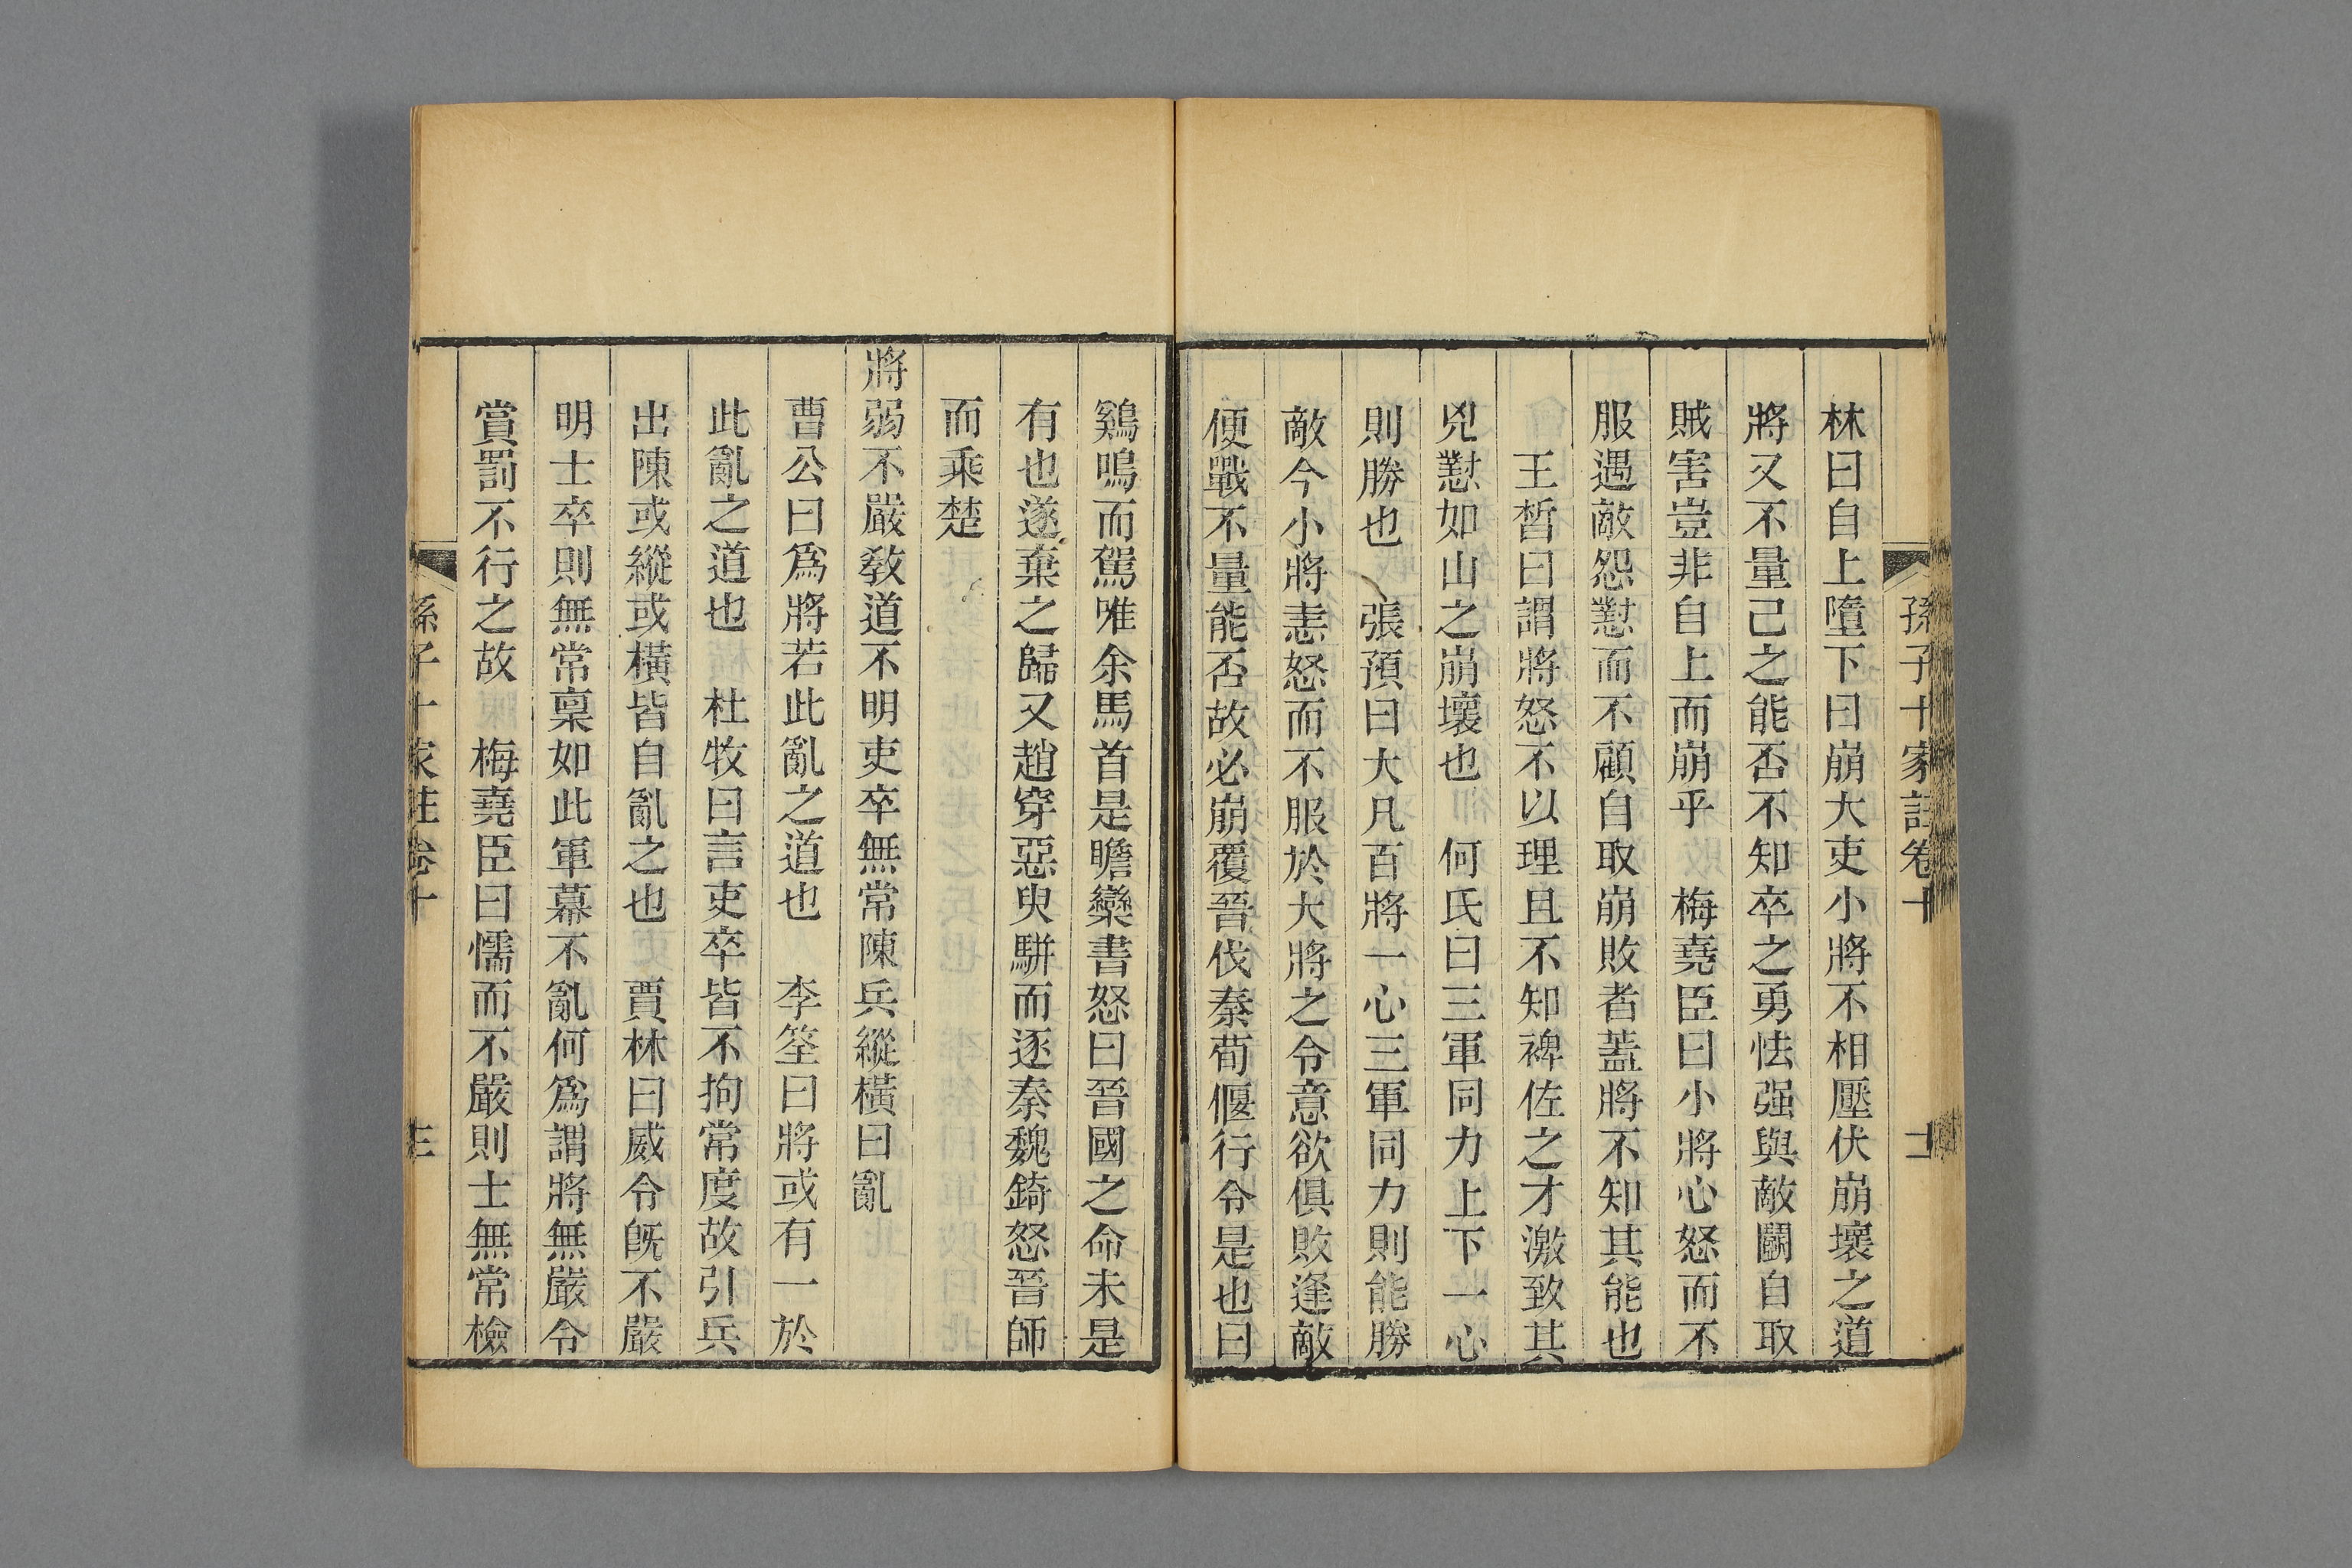 孫子十家註卷十
十二
林曰自上墮下曰崩大吏小將不相壓伏崩壞之道
將又不量己之能否不知卒之勇怯强與敵鬭自取
賊害豈非自上而崩乎　梅堯臣曰小將心怒而不
服遇敵怨懟而不顧自取崩敗者蓋將不知其能也
王晳曰謂將怒不以理且不知裨佐之才激致其
兇懟如山之崩壞也　何氏曰三軍同力上下一心
則勝也　張預曰大凡百將一心三軍同力則能勝
敵今小將恚怒而不服於大將之令意欲俱敗逢敵
便戰不量能否故必崩覆晉伐秦荀偃行令是也曰
鷄鳴而駕唯余馬首是瞻欒書怒曰晉國之命未是
有也遂棄之歸又趙穿惡臾駢而逐秦魏錡怒晉師
而乘楚
將弱不嚴敎道不明吏卒無常陳兵縱橫曰亂
曹公曰爲將若此亂之道也　李筌曰將或有一於
此亂之道也　杜牧曰言吏卒皆不拘常度故引兵
出陳或縱或橫皆自亂之也　賈林曰威令旣不嚴
明士卒則無常稟如此軍幕不亂何爲謂將無嚴令
賞罰不行之故　梅堯臣曰懦而不嚴則士無常檢
孫子十家註卷十